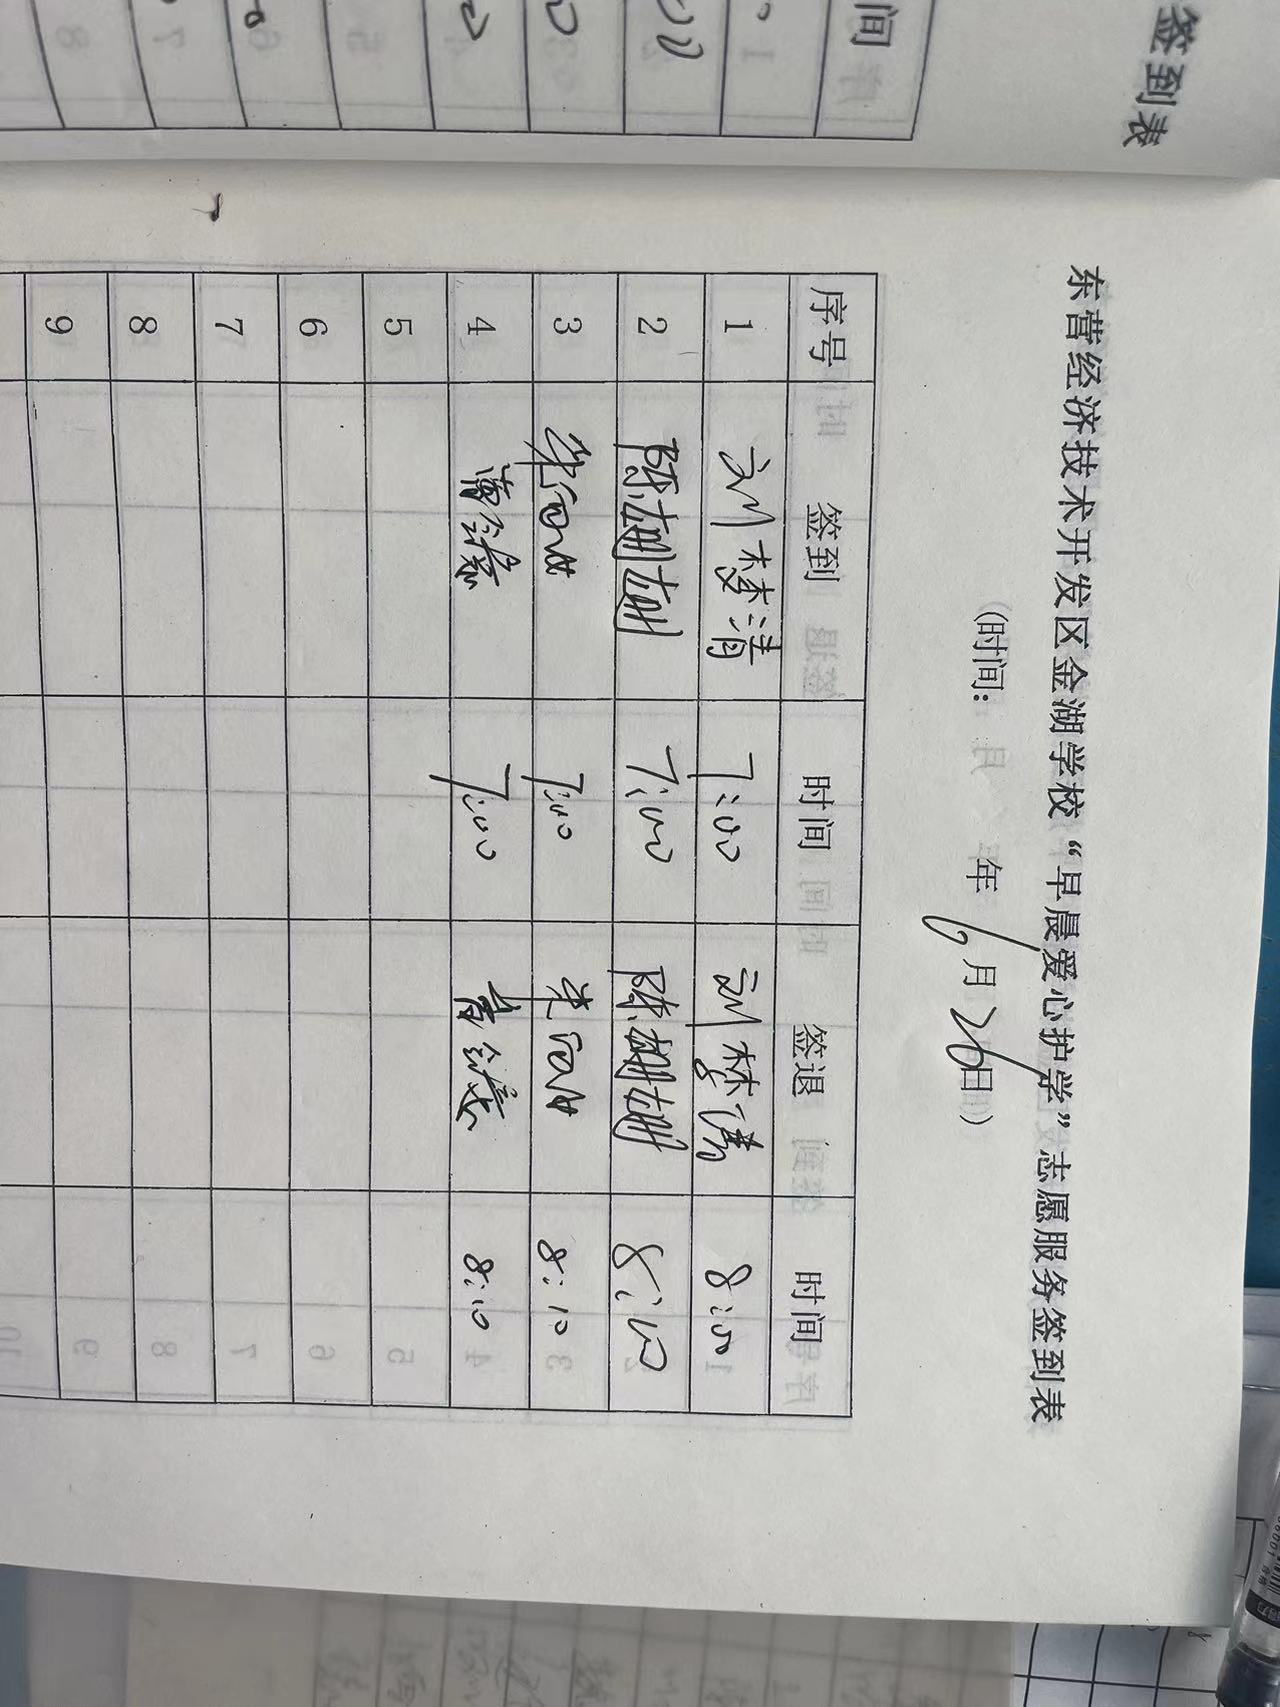 签到表
间
东营经济技术开发区金湖学校“早晨爱心护学”志愿服务签到表
(时间: 年 6 月 26 日)
序号 签到 时间 签退 时间
1 刘梦清 7:00 刘梦清 8:00
2 陈姗姗 7:00 陈姗姗 8:10
3 7:00 8:10
4 7:00 8:10
5
6
7
8
9